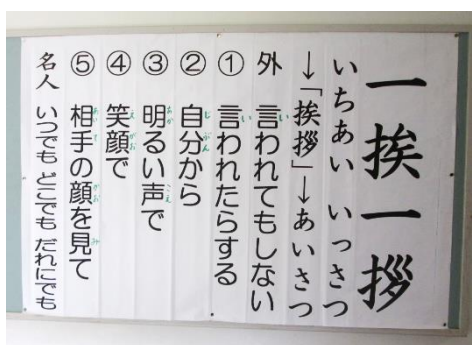 一挨一拶
いちあい いっさつ
→「挨拶」→あいさつ
外 言われてもしない
① 言われたらする
② 自分から
③ 明るい声で
④ 笑顔で
⑤ 相手の顔を見て
名人 いつでも どこでも だれにでも